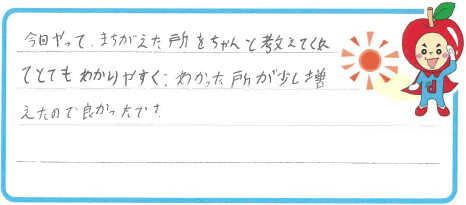 今回やって、まちがえた所をちゃんと教えてくれ
てとてもわかりやすく、わかった所が少し増
えたので良かったです